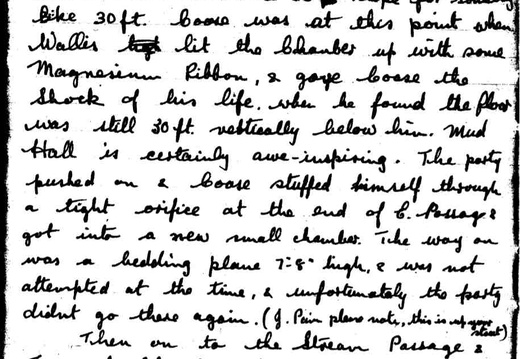 like 30 ft. Coase was at this point when
Wallis lit the Chamber up with some
Magnesium Ribbon, & gave Coase the
Shock of his life, when he found the floor
was still 30 ft. vertically below him. Mud
Hall is certainly awe-inspiring. The party
pushed on & Coase stuffed himself through
a tight orifice at the end of C. Passage &
got into a new small chamber. The way on
was a bedding plane 7"-8" high, & was not
attempted at the time, & unfortunately the party
didnt go there again. (J. Pain please note, this is up
Then on to the Stream Passage &